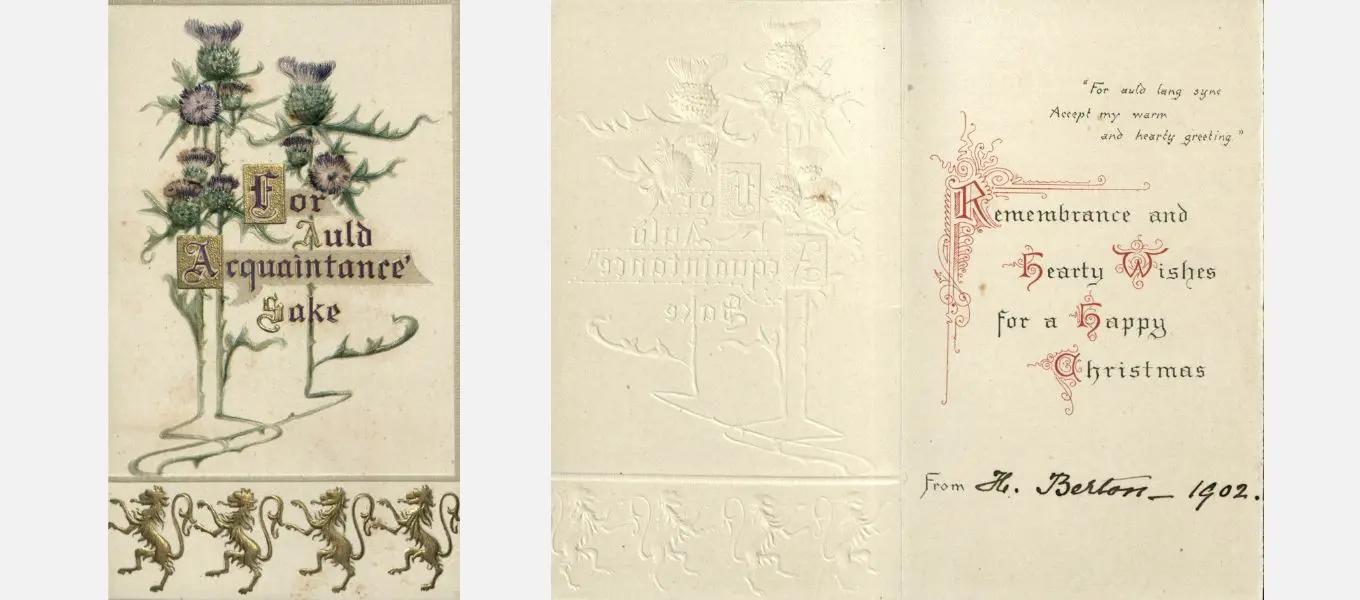 For
Auld
Acquaintance'
Sake
"For auld lang syne
Accept my warm
and hearty greeting."
Remembrance and
Hearty Wishes
for a Happy
Christmas
From H. Berton - 1902.